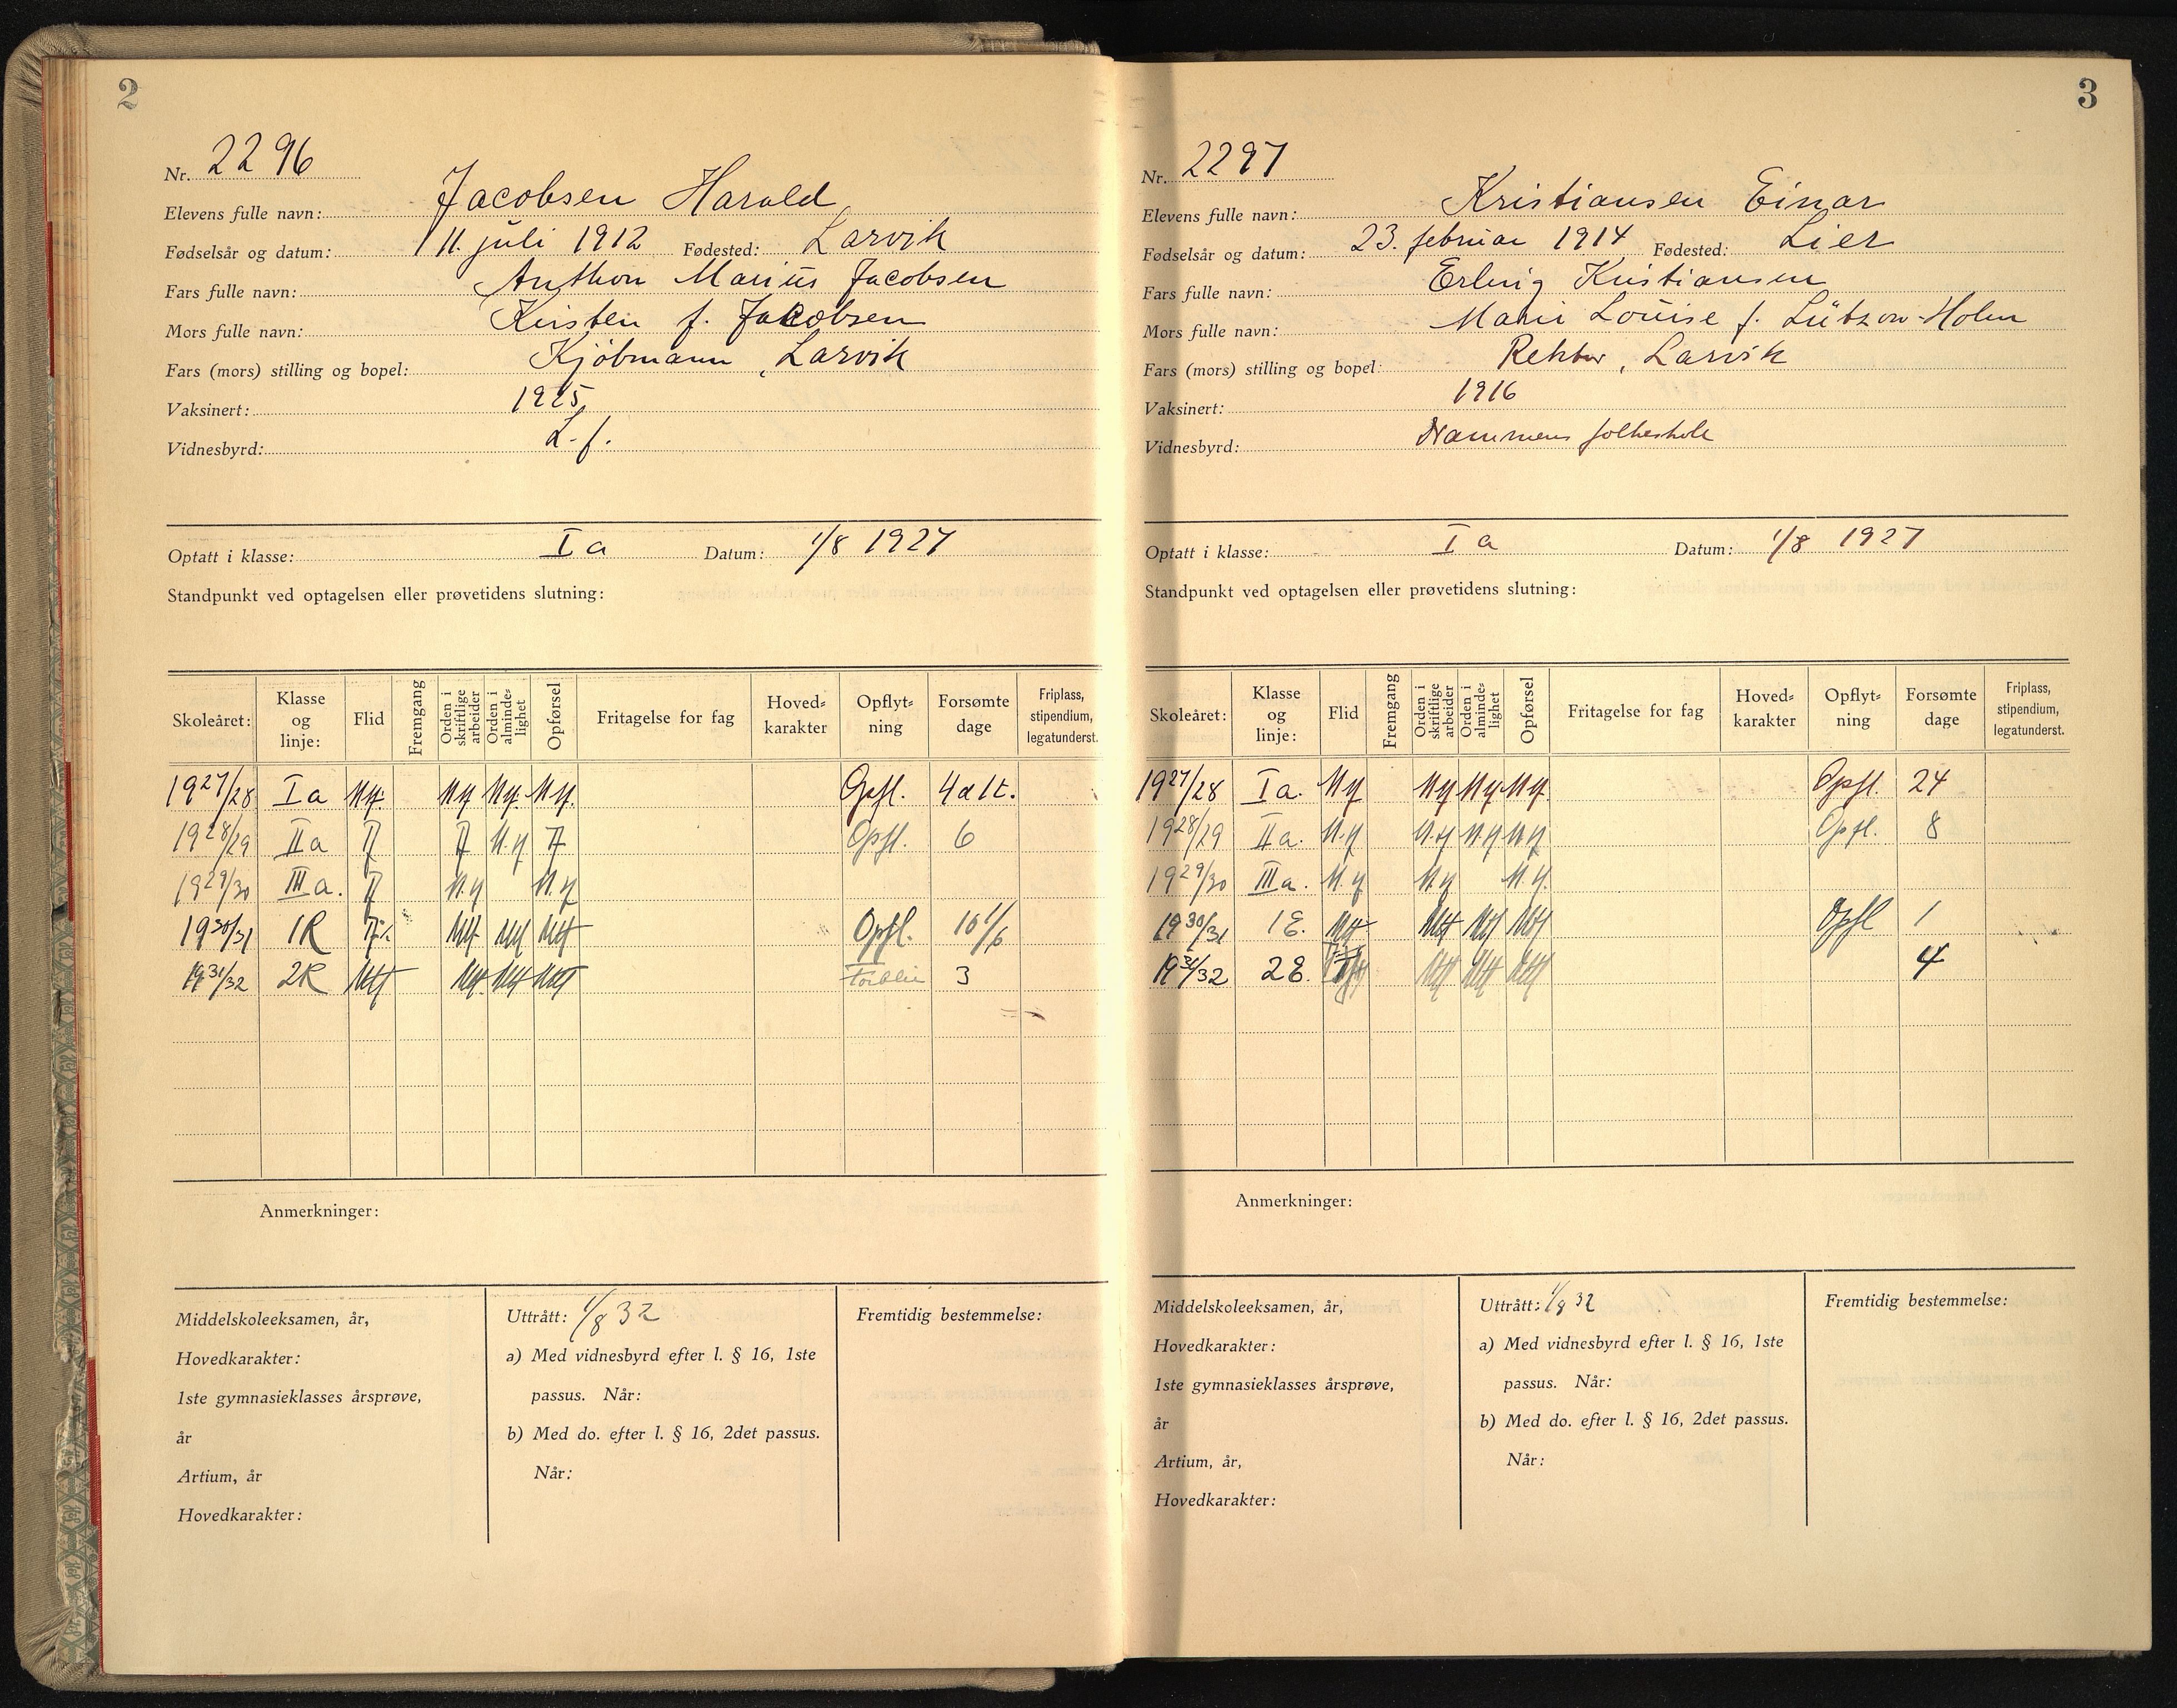 2
Nr. 2296
Elevens fulle navn: Jacobsen Harald
Fødselsår og datum: 11. juli 1912 Fødested: Larvik
Fars fulle navn: Anthon Marius Jacobsen
Mors fulle navn: Kirsten f. Jacobsen
Fars (mors) stilling og bopel: Kjøbmann, Larvik
Vaksinert: 1925
Vidnesbyrd: L. f.
Optatt i klasse: I a Datum: 1/8 1927
Standpunkt ved optagelsen eller prøvetidens slutning:
Skoleåret: Klasse og linje: Flid Fremgang Orden i skriftlige arbeider Orden i almindelighet Opførsel Fritagelse for fag Hoved-karakter Opflyt-ning Forsømte dage Friplass, stipendium, legatunderst.
1927/28 I a Mg. Mg Mg. Mg. Opfl. 4 d 1 t.
1928/29 II a M.g Opfl. 6
1929/30 III a. M.g M.g
1930/31 1R Mtf Mtf Mtf Opfl. 16 1/6
1931/32 2R Mtf Mtf Mtf Mtf 3
Anmerkninger:
Middelskoleeksamen, år,
Hovedkarakter:
1ste gymnasieklasses årsprøve,
år
Artium, år
Hovedkarakter:
Uttrått: 1/8 32
a) Med vidnesbyrd efter l. § 16, 1ste
passus. Når:
b) Med do. efter l. § 16, 2det passus.
Når:
Fremtidig bestemmelse:
3
Nr. 2297
Elevens fulle navn: Kristiansen Einar
Fødselsår og datum: 23. februar 1914 Fødested: Lier
Fars fulle navn: Erling Kristiansen
Mors fulle navn: Marie Louise f. Lützow-Holm
Fars (mors) stilling og bopel: Rektor, Larvik
Vaksinert: 1916
Vidnesbyrd: Drammens folkeskole
Optatt i klasse: I a Datum: 1/8 1927
Standpunkt ved optagelsen eller prøvetidens slutning:
Skoleåret: Klasse og linje: Flid Fremgang Orden i skriftlige arbeider Orden i almindelighet Opførsel Fritagelse for fag Hoved-karakter Opflyt-ning Forsømte dage Friplass, stipendium, legatunderst.
1927/28 I a. Mg Mg Mg Mg. Opfl. 24
1928/29 II a. M.g M.g M.g M.g Opfl. 8
1929/30 III a. M.g M.g M.g.
1930/31 1E. Mtf Mtf Mtf Mtf Opfl 1
1931/32 2E. Mtf Mtf Mtf 4
Anmerkninger:
Middelskoleeksamen, år,
Hovedkarakter:
1ste gymnasieklasses årsprøve,
år
Artium, år,
Hovedkarakter:
Uttrått: 1/8 32
a) Med vidnesbyrd efter l. § 16, 1ste
passus. Når:
b) Med do. efter l. § 16, 2det passus.
Når:
Fremtidig bestemmelse: